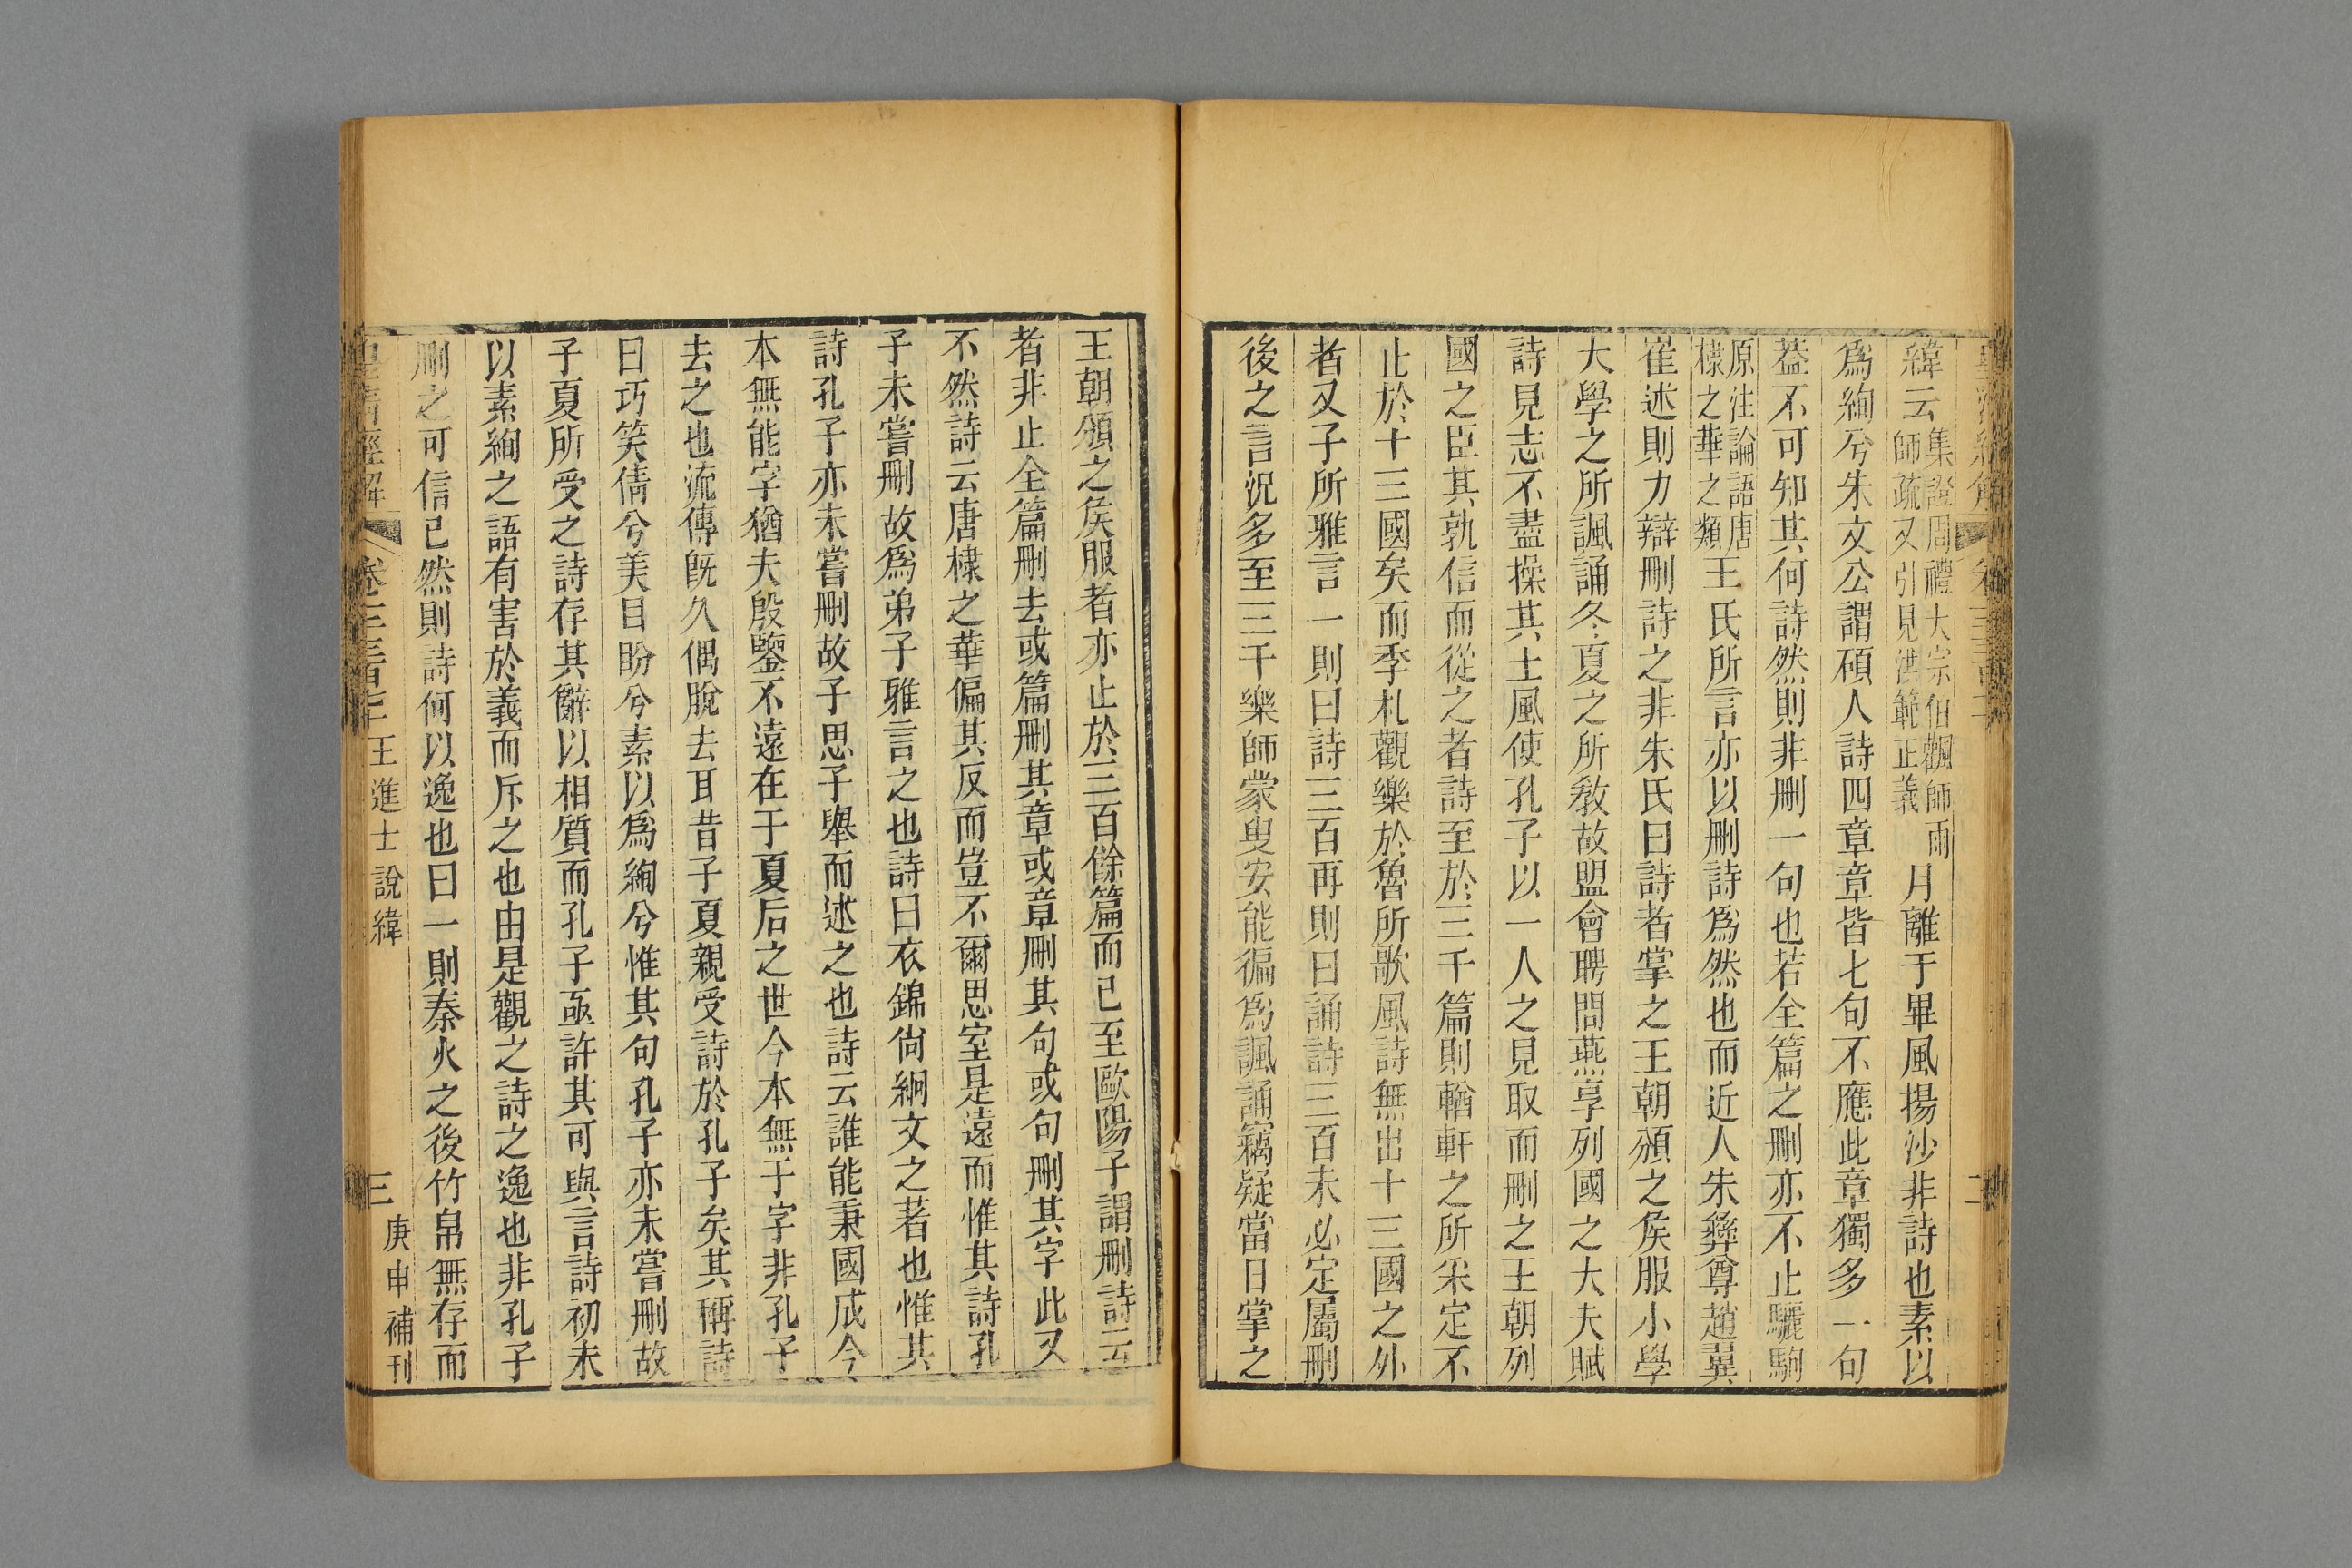 緯云集證周禮大宗伯飌師雨師疏又引見洪範正義月離于畢風揚沙非詩也素以
爲絢兮朱文公謂碩人詩四章章皆七句不應此章獨多一句
葢不可知其何詩然則非刪一句也若全篇之刪亦不止驪駒
原注論語唐棣之華之類王氏所言亦以刪詩爲然也而近人朱彝尊趙翼
崔述則力辯刪詩之非朱氏曰詩者掌之王朝頒之矦服小學
大學之所諷誦冬夏之所敎故盟會聘問燕享列國之大夫賦
詩見志不盡操其土風使孔子以一人之見取而刪之王朝列
國之臣其孰信而從之者詩至於三千篇則輶軒之所采定不
止於十三國矣而季札觀樂於魯所歌風詩無出十三國之外
者又子所雅言一則曰詩三百再則曰誦詩三百未必定屬刪
後之言況多至三千樂師蒙叟安能徧爲諷誦竊疑當日掌之
王朝頒之矦服者亦止於三百餘篇而已至歐陽子謂刪詩云
者非止全篇刪去或篇刪其章或章刪其句或句刪其字此又
不然詩云唐棣之華偏其反而豈不爾思室是遠而惟其詩孔
子未嘗刪故爲弟子雅言之也詩曰衣錦尙絅文之著也惟其
詩孔子亦未嘗刪故子思子舉而述之也詩云誰能秉國成今
本無能字猶夫殷鑒不遠在于夏后之世今本無于字非孔子
去之也流傳旣久偶脫去耳昔子夏親受詩於孔子矣其稱詩
曰巧笑倩兮美目盼兮素以爲絢兮惟其句孔子亦未嘗刪故
子夏所受之詩存其辭以相質而孔子亟許其可與言詩初未
以素絢之語有害於義而斥之也由是觀之詩之逸也非孔子
刪之可信已然則詩何以逸也曰一則秦火之後竹帛無存而
皇清經解 卷 王進士說緯 三 庚申補刊